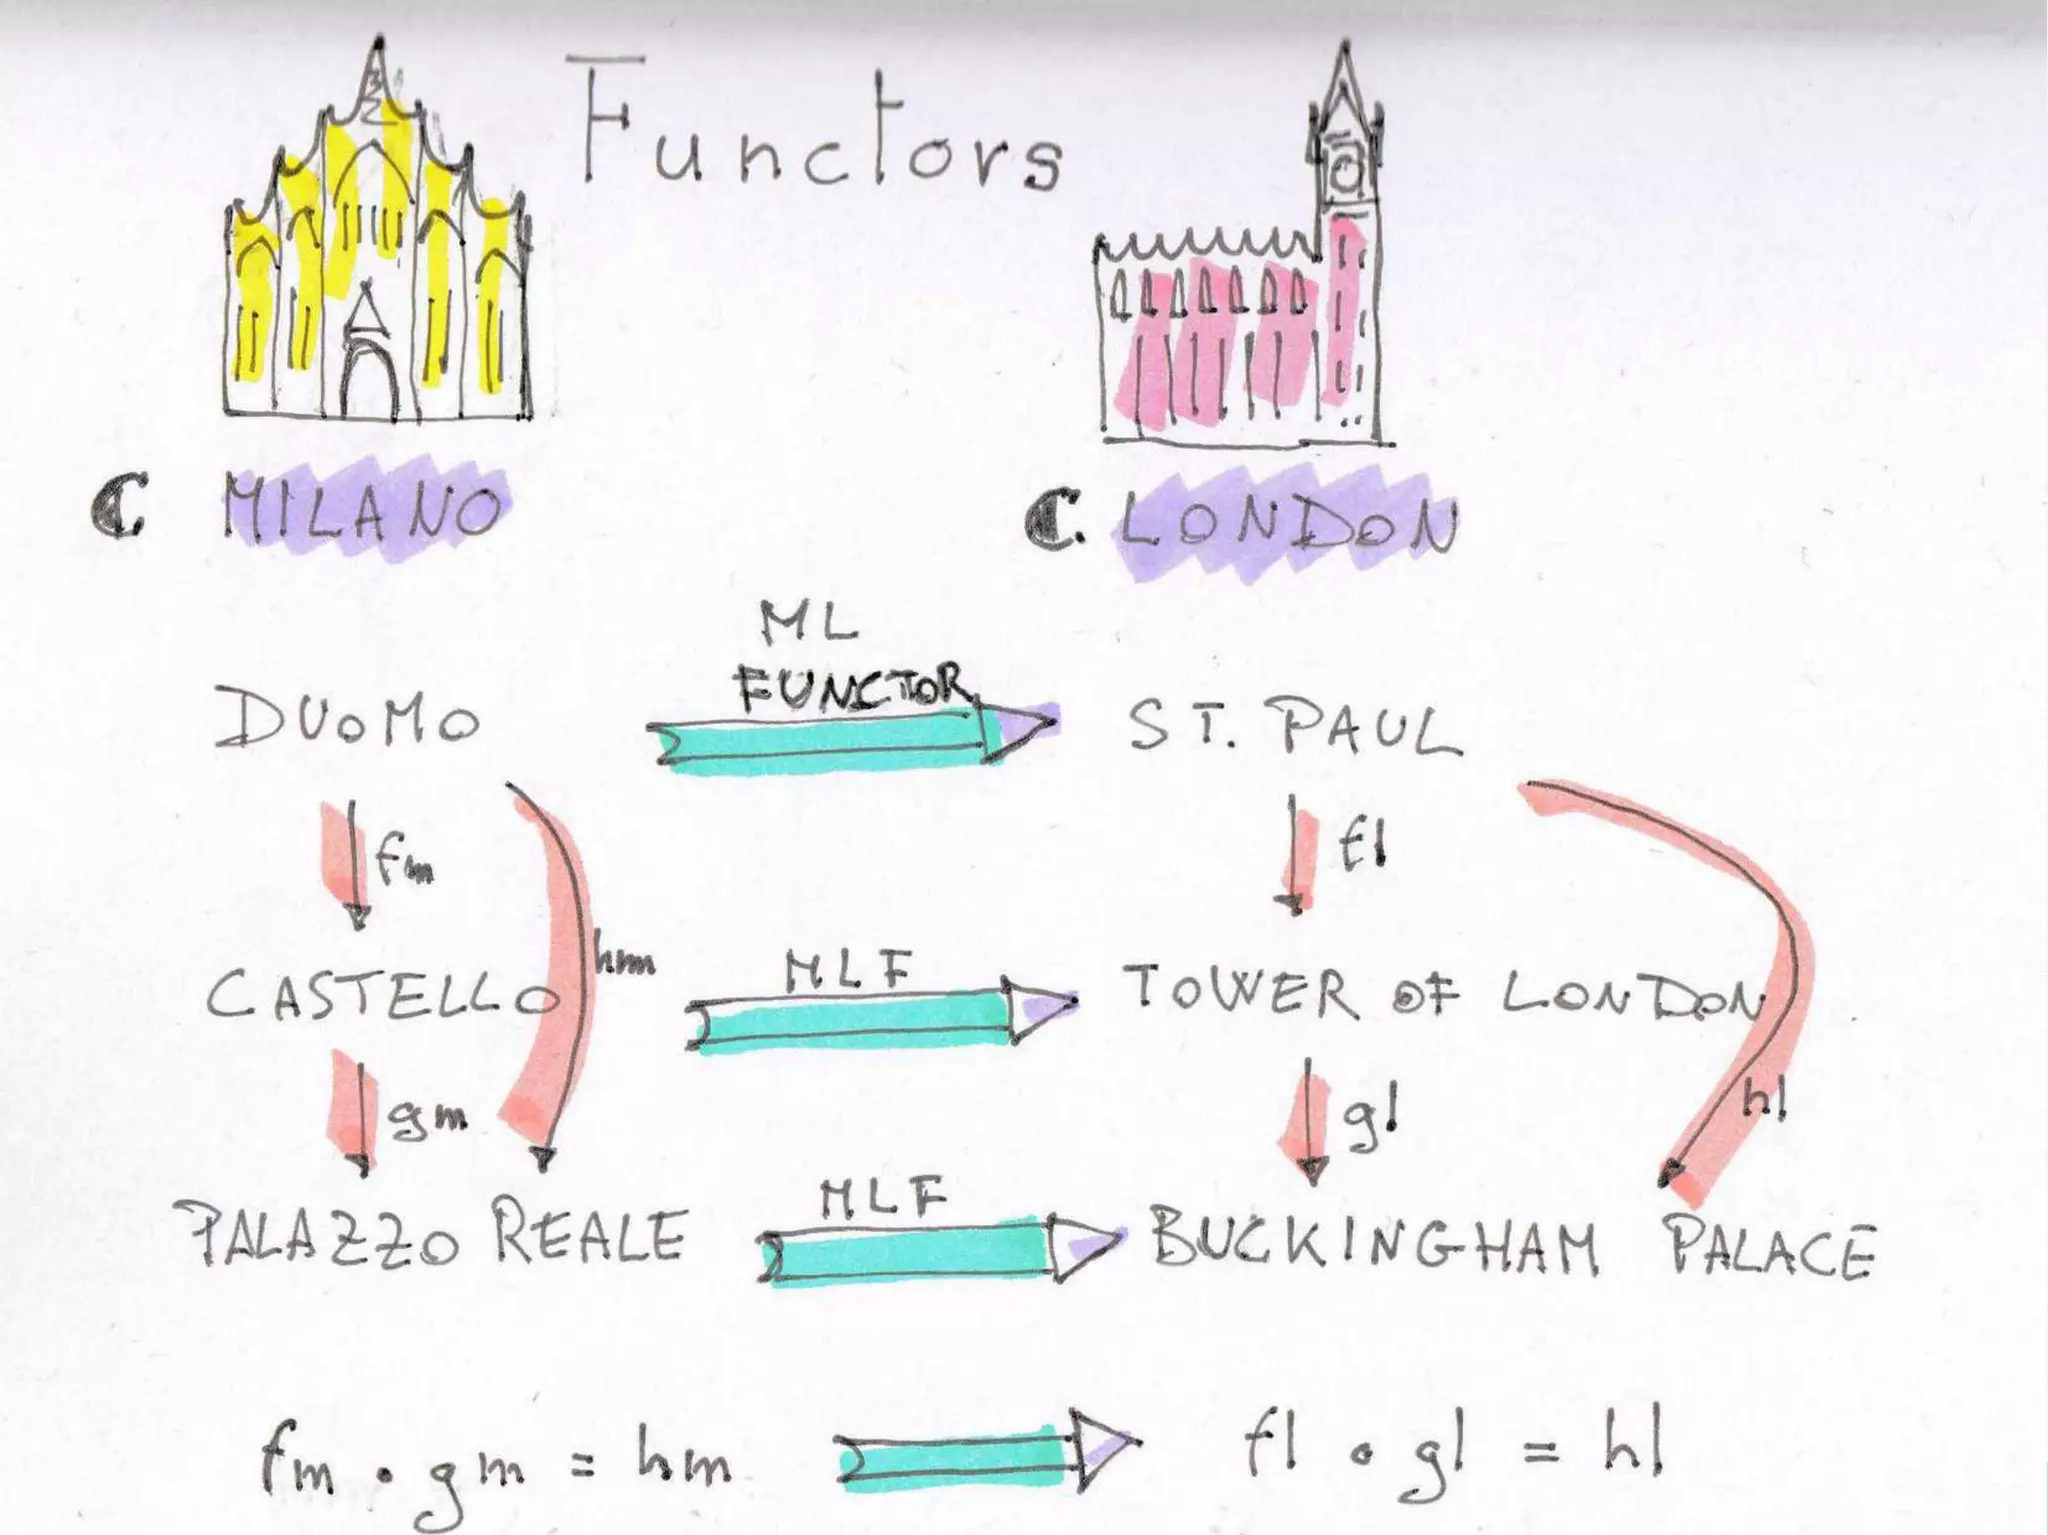 Functors
ℂ MILANO
ℂ. LONDON
ML
FUNCTOR
DUOMO
ST. PAUL
fm
fl
hm
CASTELLO
MLF
TOWER OF LONDON
gm
gl
hl
PALAZZO REALE
MLF
BUCKINGHAM PALACE
fm . gm = hm
fl . gl = hl